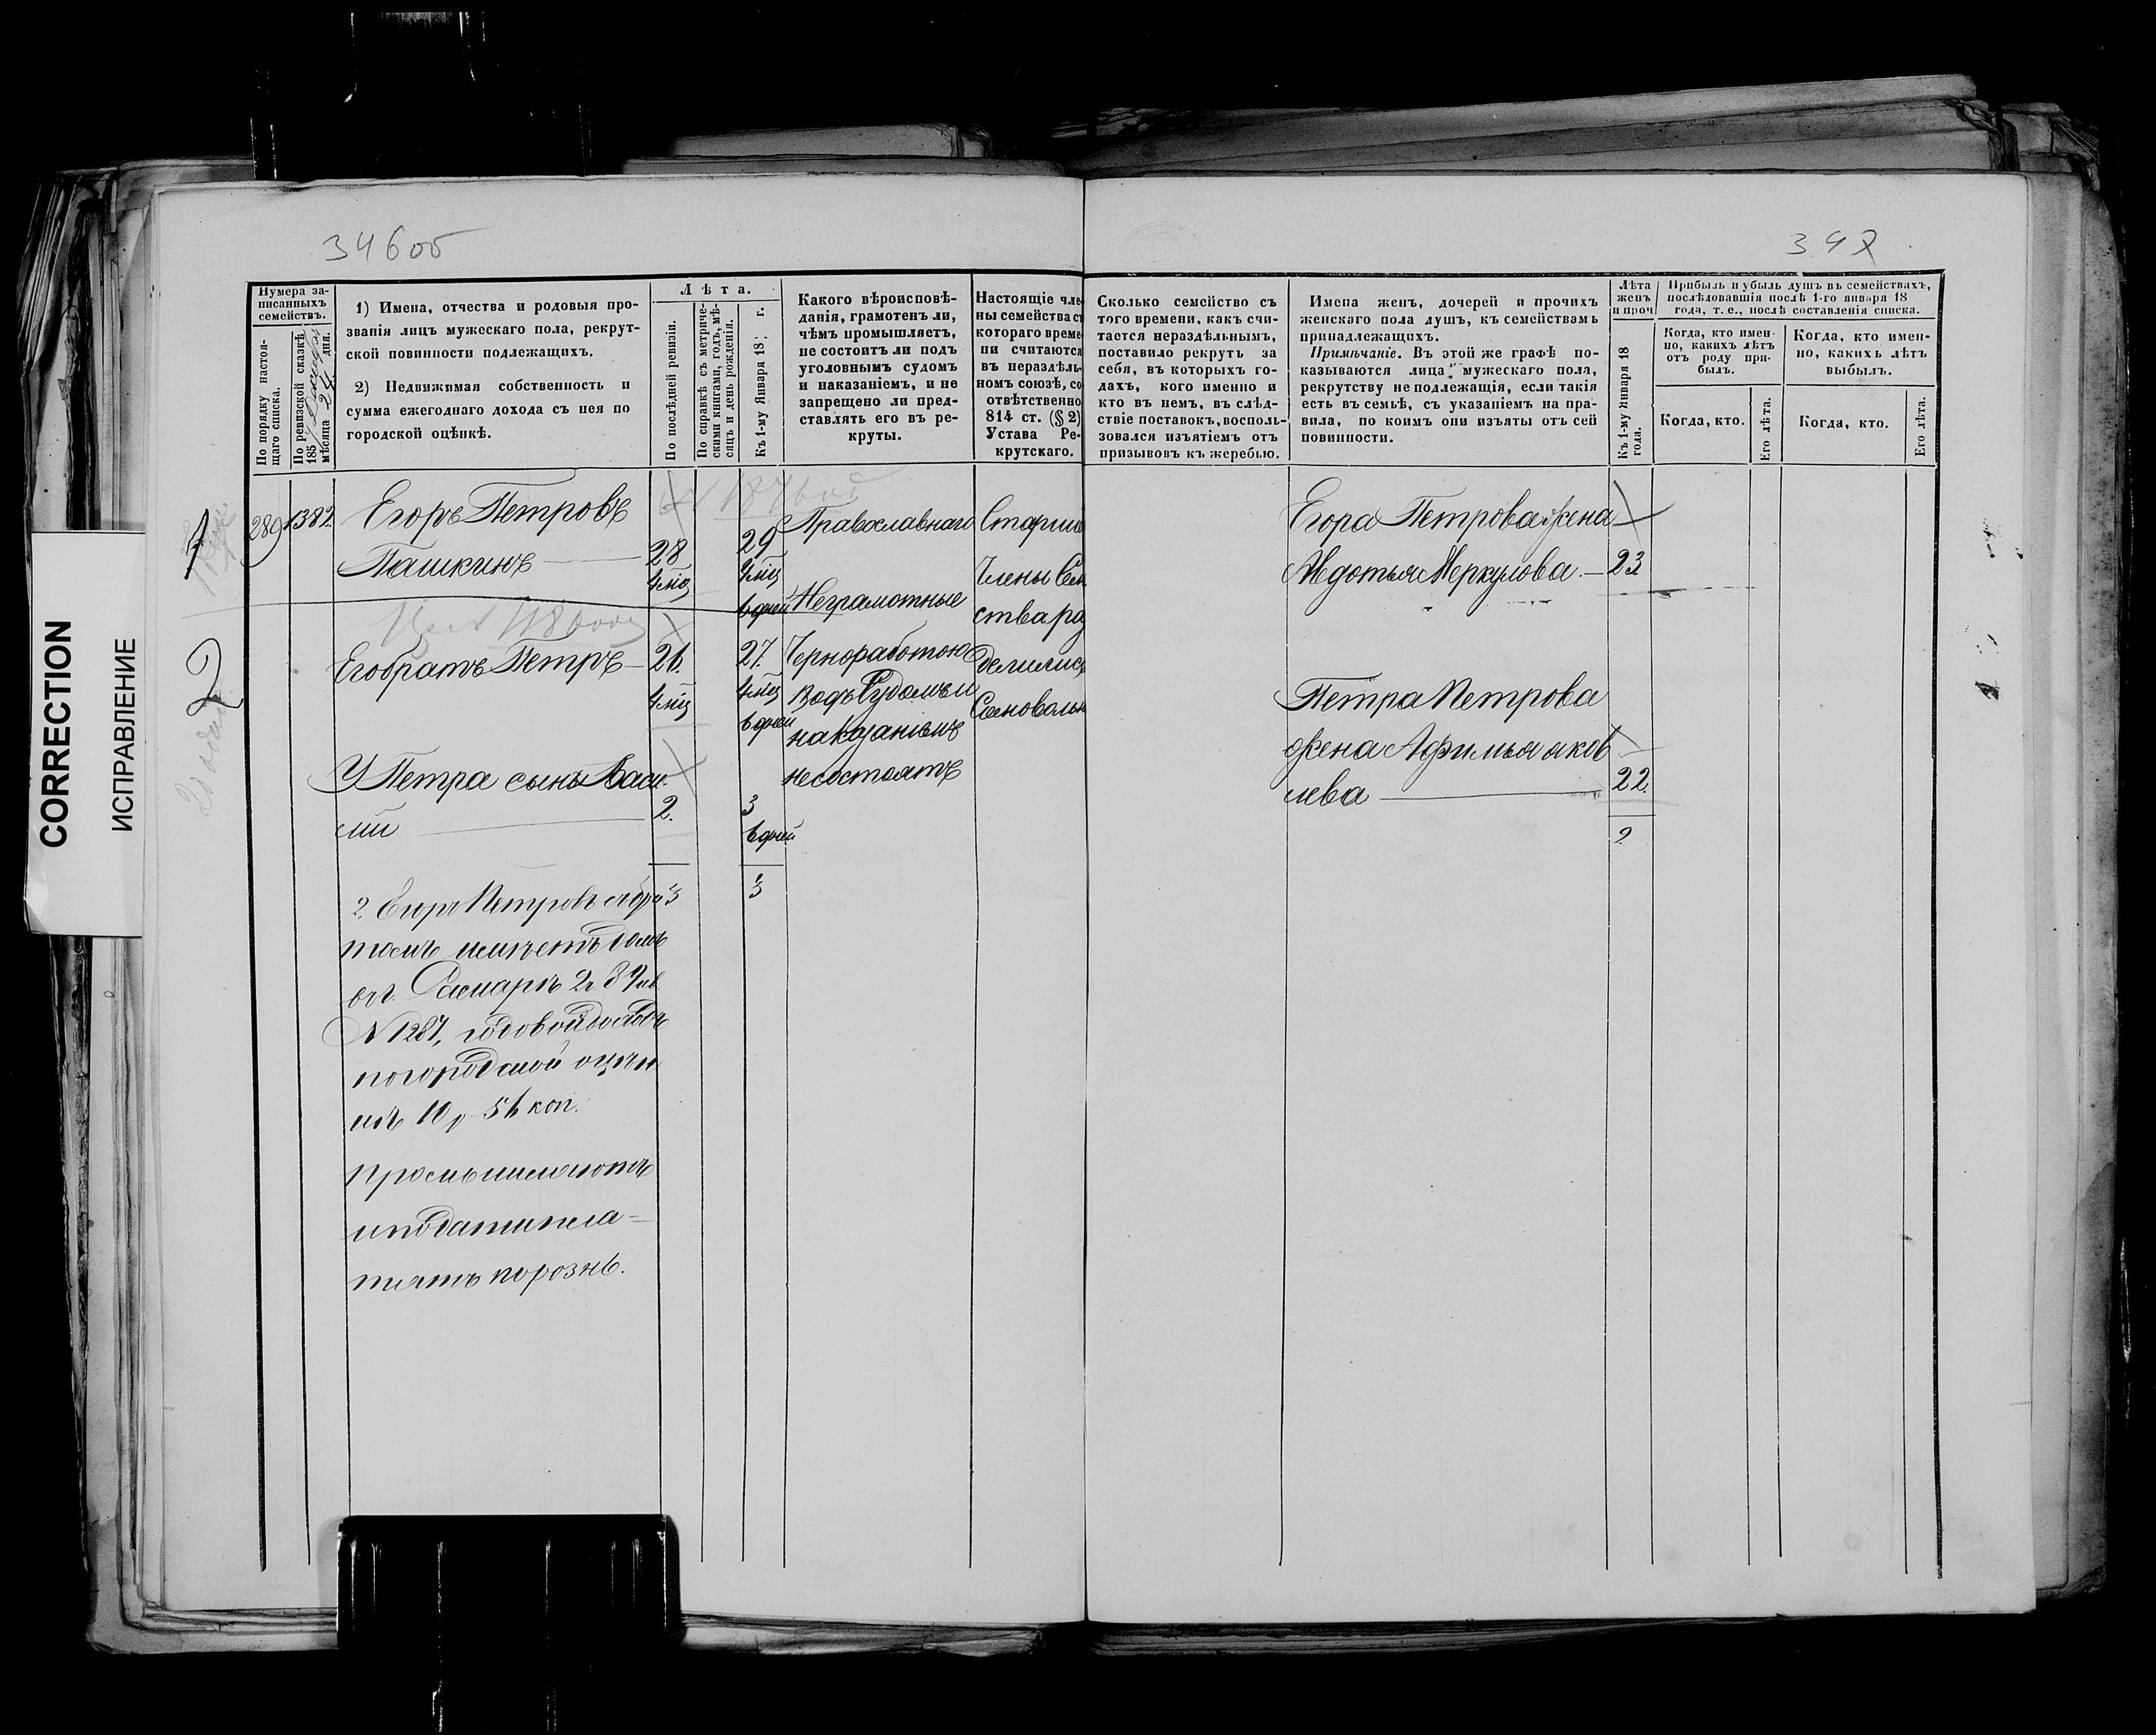 CORRECTION
ИСПРАВЛЕНІЕ
346об
Нумера за-
писанныхъ
семействъ.
По порядку настоя-
щаго списка.
По ревизской сказкѣ
185
мѣсяца 24 дня.
1) Имена, отчества и родовыя про-
званія лицъ мужескаго пола, рекрут-
ской повинности подлежащихъ.
2) Недвижимая собственность и
сумма ежегоднаго дохода съ нея по
городской оцѣнкѣ.
Лѣта.
По послѣдней ревизіи.
По справкѣ съ метриче-
скими книгами, годъ, мѣ-
сяцъ и день рожденія.
Къ 1-му Января 18 г.
Какого вѣроисповѣ-
данія, грамотенъ ли,
чѣмъ промышляетъ,
не состоитъ ли подъ
уголовнымъ судомъ
и наказаніемъ, и не
запрещено ли пред-
ставлять его въ ре-
круты.
Настоящіе чле-
ны семейства съ
котораго време-
ни считаются
въ нераздѣль-
номъ союзѣ, со-
отвѣтственно
814 ст. (§ 2)
Устава Ре-
крутскаго.
289 1382.
Егоръ Петровъ
Пашкинъ 28
4 мѣс
29
4 мѣс
6 дней
Его братъ Петръ 26.
4 мѣс
27.
4 мѣс
6 дней
У Петра сынъ Васи-
лій
2.
3
6 дней
3
3
Православнаго
Неграмотные
Черноработою
Подъ Судомъ и
наказаніемъ
несостоятъ
Старши
Члены Сем
ства раз
делились
Самовольн
2. Егоръ Петровъ събра
томъ имѣетъ домъ
вг. Самарѣ 2й ч 39 кв
N 1287, годовой доходъ
погородской оцѣн
кѣ 10 р 56 коп.
Промышляютъ
иподати пла=
тятъ порознь.
Сколько семейство съ
того времени, какъ счи-
тается нераздѣльнымъ,
поставило рекрутъ за
себя, въ которыхъ го-
дахъ, кого именно и
кто въ немъ, въ слѣд-
ствіе поставокъ, восполь-
зовался изъятіемъ отъ
призывовъ къ жеребью.
Имена женъ, дочерей и прочихъ
женскаго пола душъ, къ семействамъ
принадлежащихъ.
Примѣчаніе. Въ этой же графѣ по-
казываются лица мужескаго пола,
рекрутству не подлежащія, если такія
есть въ семьѣ, съ указаніемъ на пра-
вила, по коимъ они изъяты отъ сей
повинности.
Лѣта
женъ
и проч
Къ 1-му Января 18
года.
Прибыль и убыль душъ въ семействахъ,
послѣдовавшія послѣ 1-го января 18
года, т. е., послѣ составленія списка.
Когда, кто имен-
но, какихъ лѣтъ
отъ роду при-
былъ.
Когда, кто имен-
но, какихъ лѣтъ
выбылъ.
Когда, кто.
Его лѣта.
Когда, кто.
Его лѣта.
Егора Петрова жена
Авдотья Меркулова. 23
Петра Петрова
жена Афимья Яков
лева 22.
2